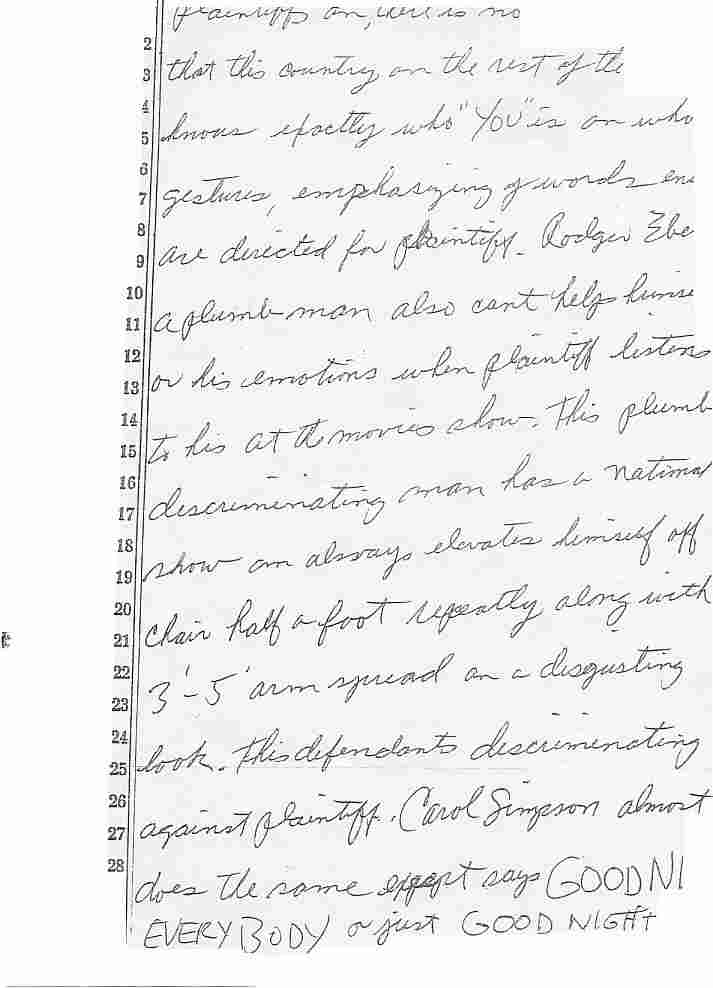 plaintiffs an, there is no
2
3 that this country an the rest of the
4
5 knows exactly who "YOU" is an who
6
7 gestures, emphasizing of words en
8
9 are directed for plaintiff. Rodger Ebe
10
11 a plumb man also cant help himse
12
13 or his emotions when plaintiff listens
14
15 to his at the movies show. This plumb
16
17 discriminating man has a national
18
19 show an always elevates himself off
20
21 chair half a foot repeatly along with
22
23 3' - 5' arm spread an a disgusting
24
25 look. This defendants discriminating
26
27 against plaintiff. Carol Simpson almost
28
does the same except says GOOD NI
EVERYBODY or just GOOD NIGHT